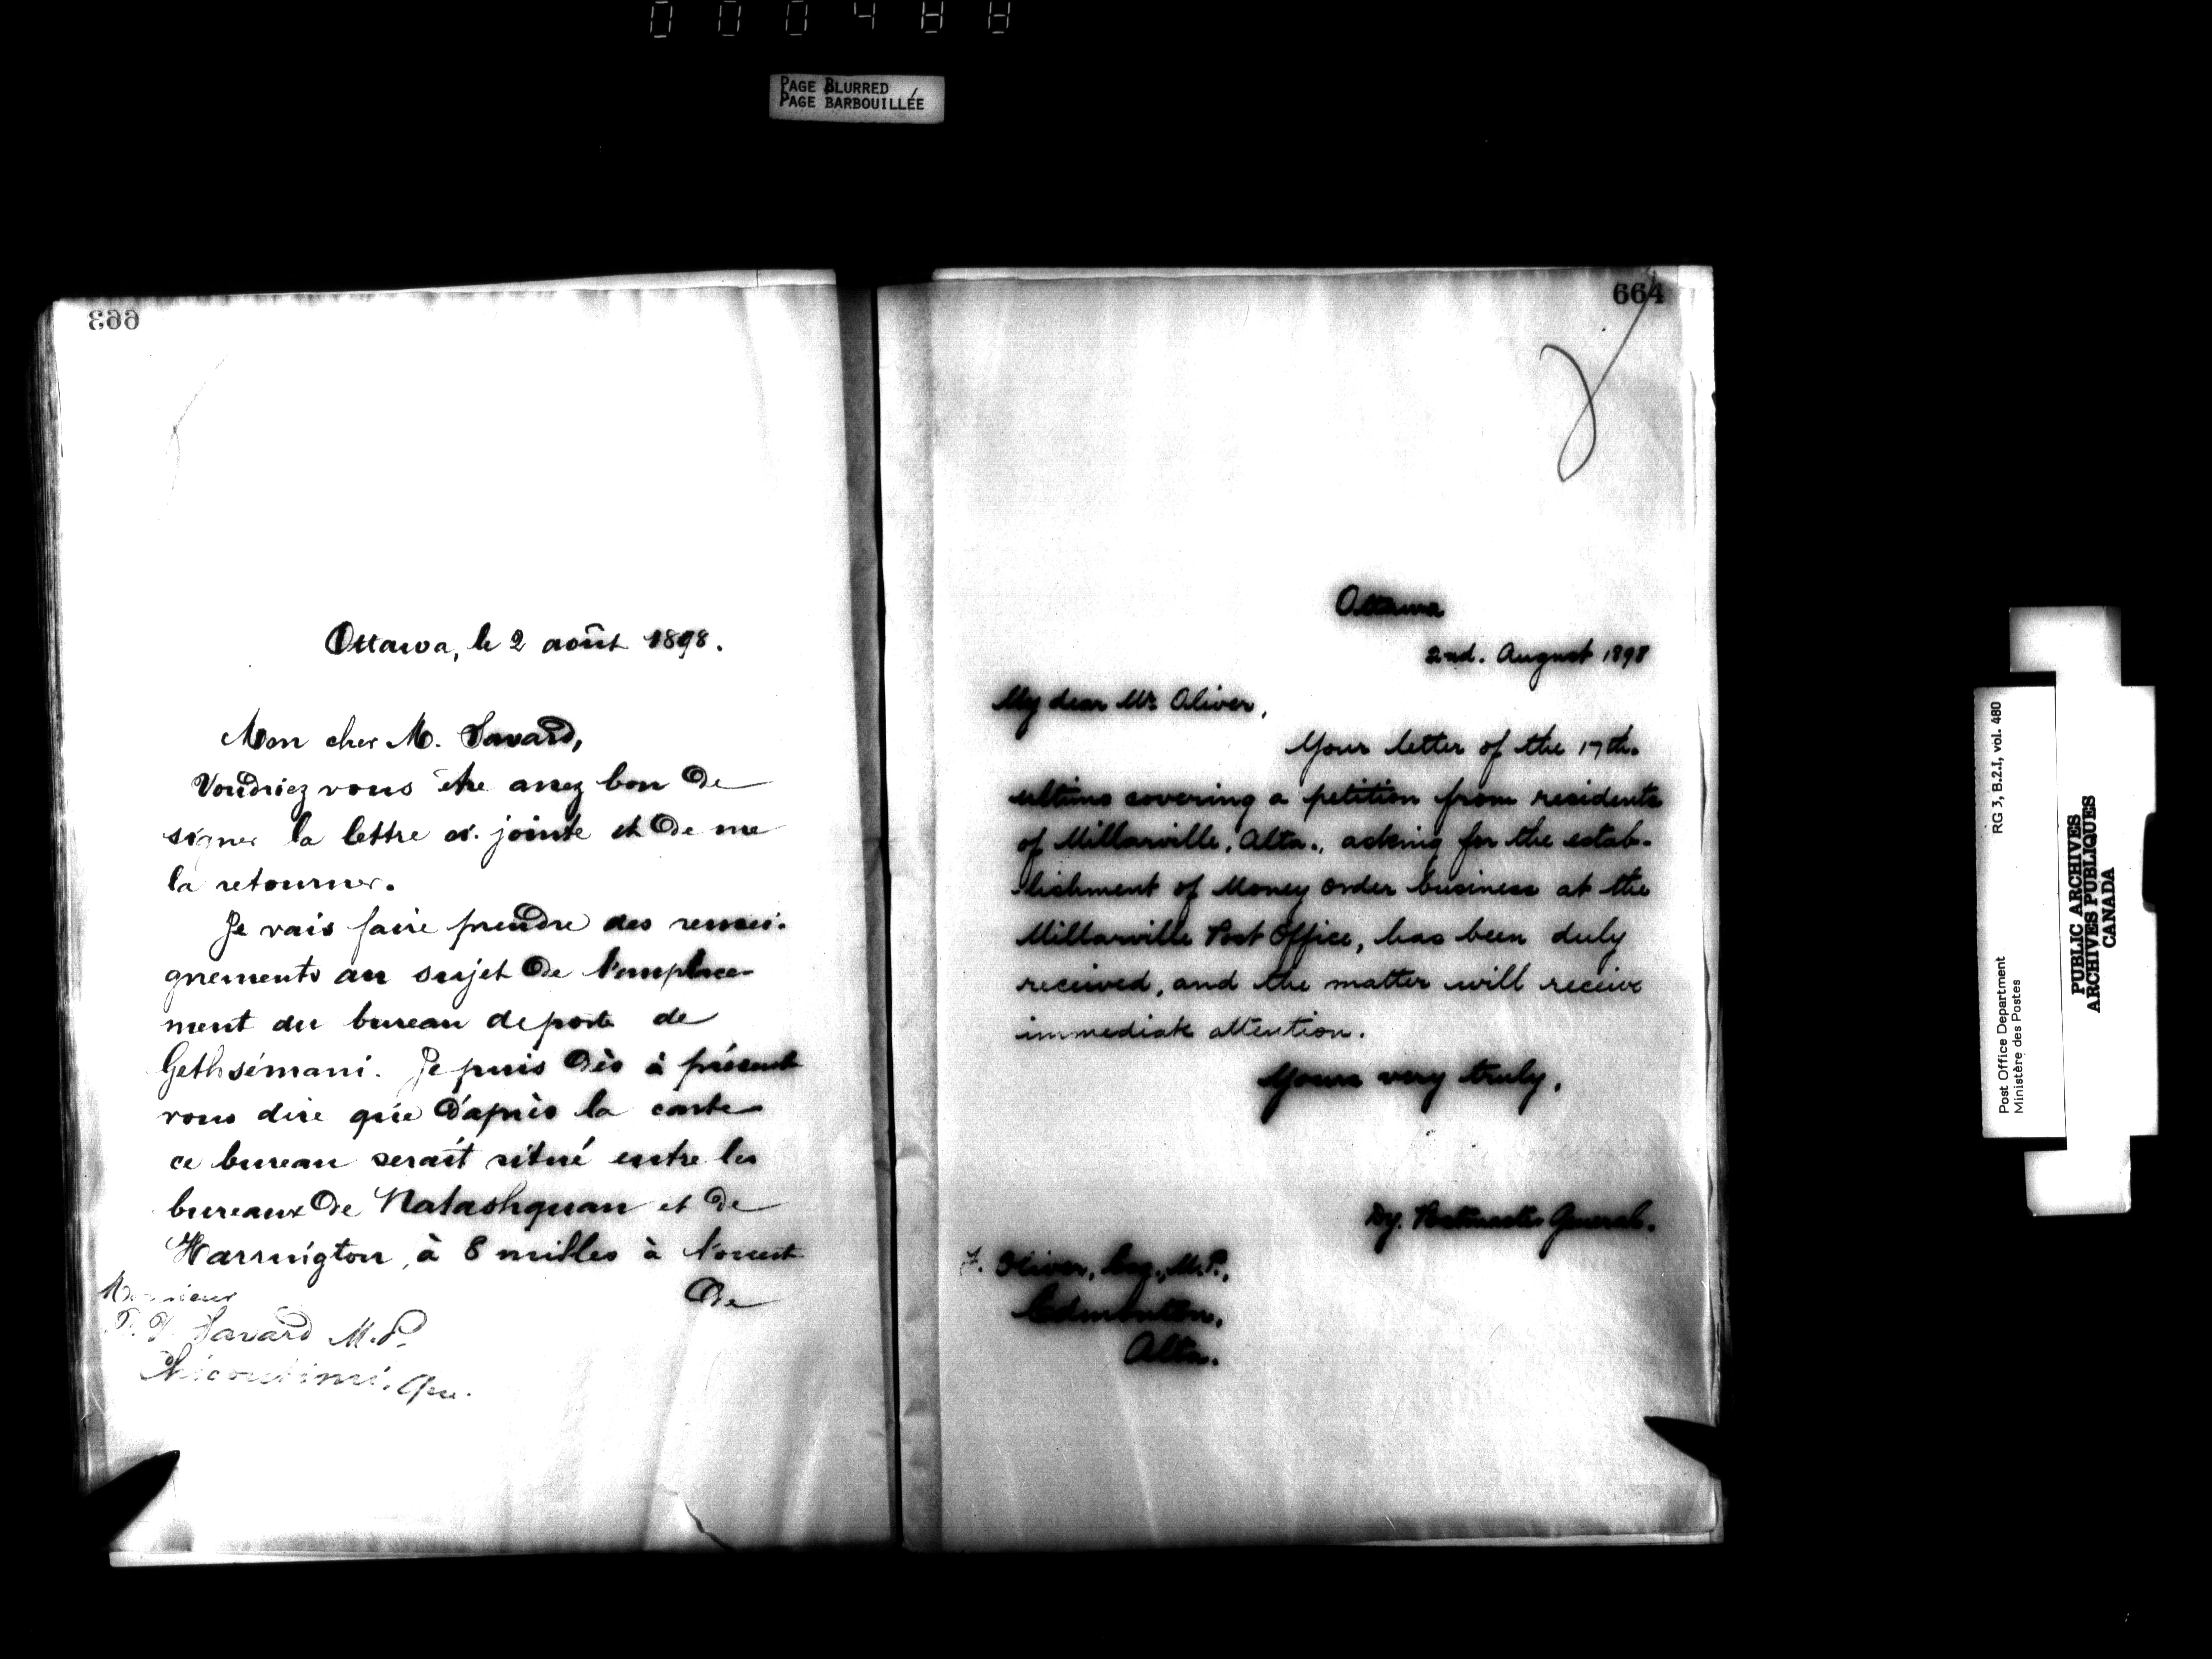 PAGE BLURRED
PAGE BARBOUILLÉE
663
Ottawa, le 2 août 1898.
Mon cher M. Savard,
Voudriez vous être assez bon de
signer la lettre ci-jointe et de me
la retourner.
Je vais faire prendre des rensei-
gnements au sujet de l'emplace-
ment du bureau de poste de
Gethsémani. Je puis dès à présent
vous dire que d'après la carte
ce bureau serait situé entre les
bureaux de Natashquan et de
Harrington, à 8 milles à l'ouest
de
Monsieur
P. V. Savard M.P.
Chicoutimi, Que.
664
Ottawa
2nd. August 1898
My dear Mr. Oliver,
Your letter of the 17th.
ultimo covering a petition from residents
of Millarville, Alta., asking for the estab-
lishment of Money Order business at the
Millarville Post Office, has been duly
received, and the matter will receive
immediate attention.
Yours very truly,
Dy. Postmaster General.
F. Oliver, Esq., M.P.,
Edmonton,
Alta.
Post Office Department
Ministère des Postes
RG 3, B.2.I, vol. 480
PUBLIC ARCHIVES
ARCHIVES PUBLIQUES
CANADA